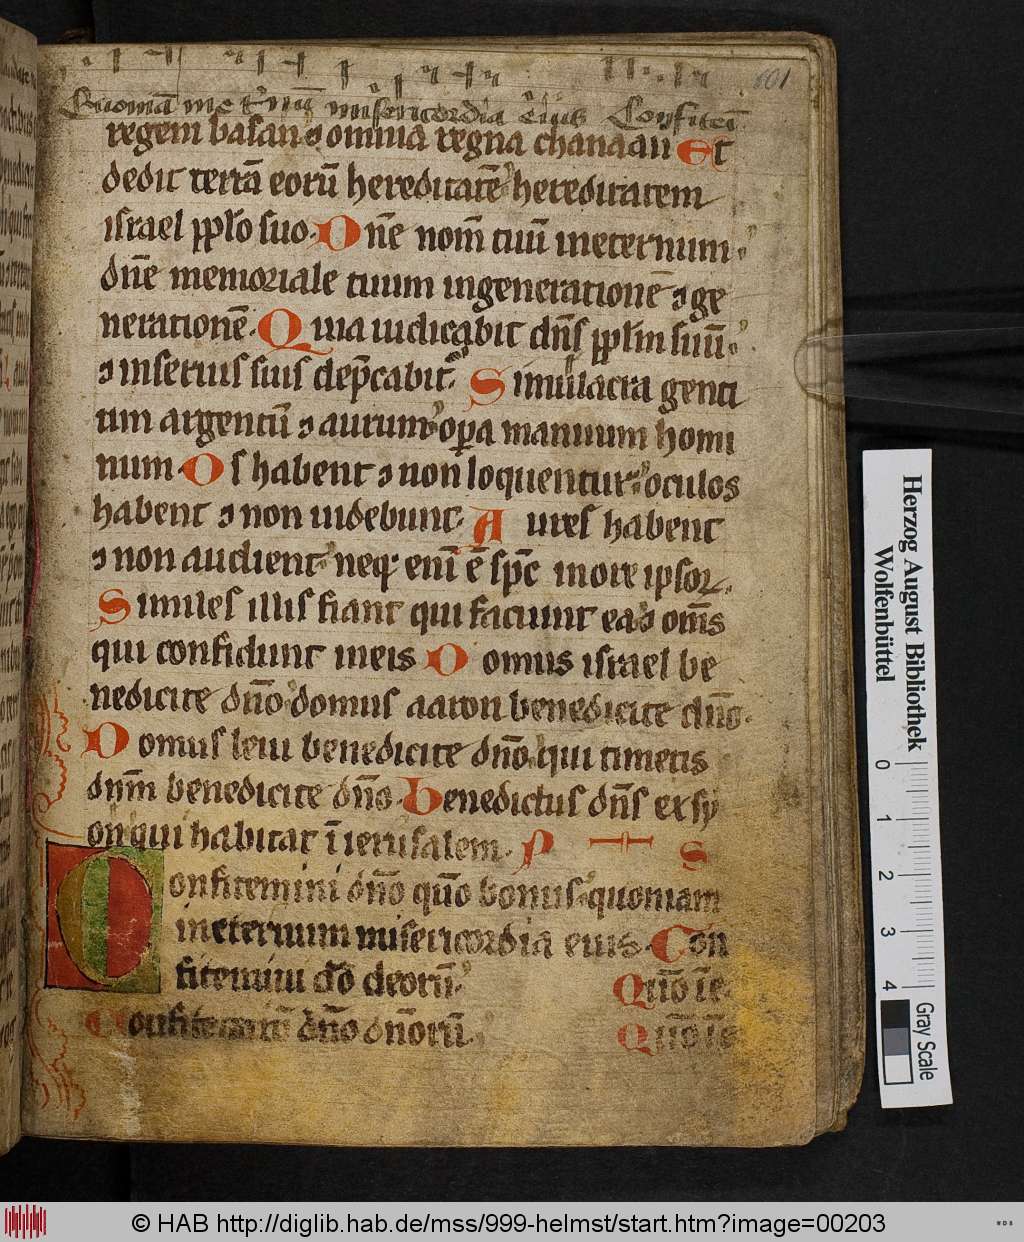 101
Quoniā in et'nū misericordia eius Confitei
regem basan ⁊ omnia regna chanaan Et
dedit terrā eorū hereditatē hereditatem
israel pplo suo. Dne nom̄ tuū ineternum
dn̄e memoriale tuum ingenerationē ⁊ ge
nerationē. Quia iudicabit dn̄s pplm suū
⁊ inseruis suis dep̄cabit'. Simulacra genti
um argentū ⁊ aurum opa manuum homi
num. Os habent ⁊ non loquentur oculos
habent ⁊ non uidebunt. Aures habent
⁊ non audient neq; enī ē sp̄c inore ipsoꝝ.
Similes illis fiant qui faciunt ea ⁊ om̄s
qui confidunt ineis. Domus israel be
nedicite dn̄o domus aaron benedicite dn̄o.
Domus leui benedicite dn̄o qui timetis
dn̄m benedicite dn̄o. Benedictus dn̄s exsy
on qui habitat ī ierusalem. P S
Confitemini dn̄o quō bonus quoniam
ineternum misericordia eius. Con
fitemini dō deorū. Quō ī e
Confitemini dn̄o dn̄orū. Quō ī e
Herzog August Bibliothek
Wolfenbüttel
0 1 2 3 4
Gray Scale
© HAB http://diglib.hab.de/mss/999-helmst/start.htm?image=00203